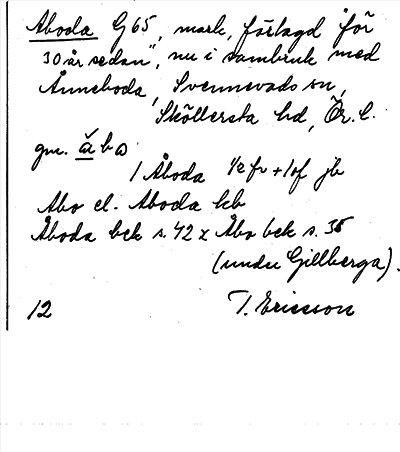 Åboda G65, mark, förlagd "för
30 år sedan", nu i sambruk med
Ånneboda, Svennevads sn,
Sköllersta hd, Ör. l.
gm. åbo
1 Åboda 1/2 fr + 1 of jb
Åbo el. Åboda kb
Åboda bek s. 42 x Åbo bek s. 35
(under Gillberga).
12 T. Ericsson